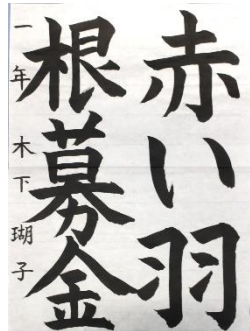 赤い羽
根募金
一年 木下瑚子